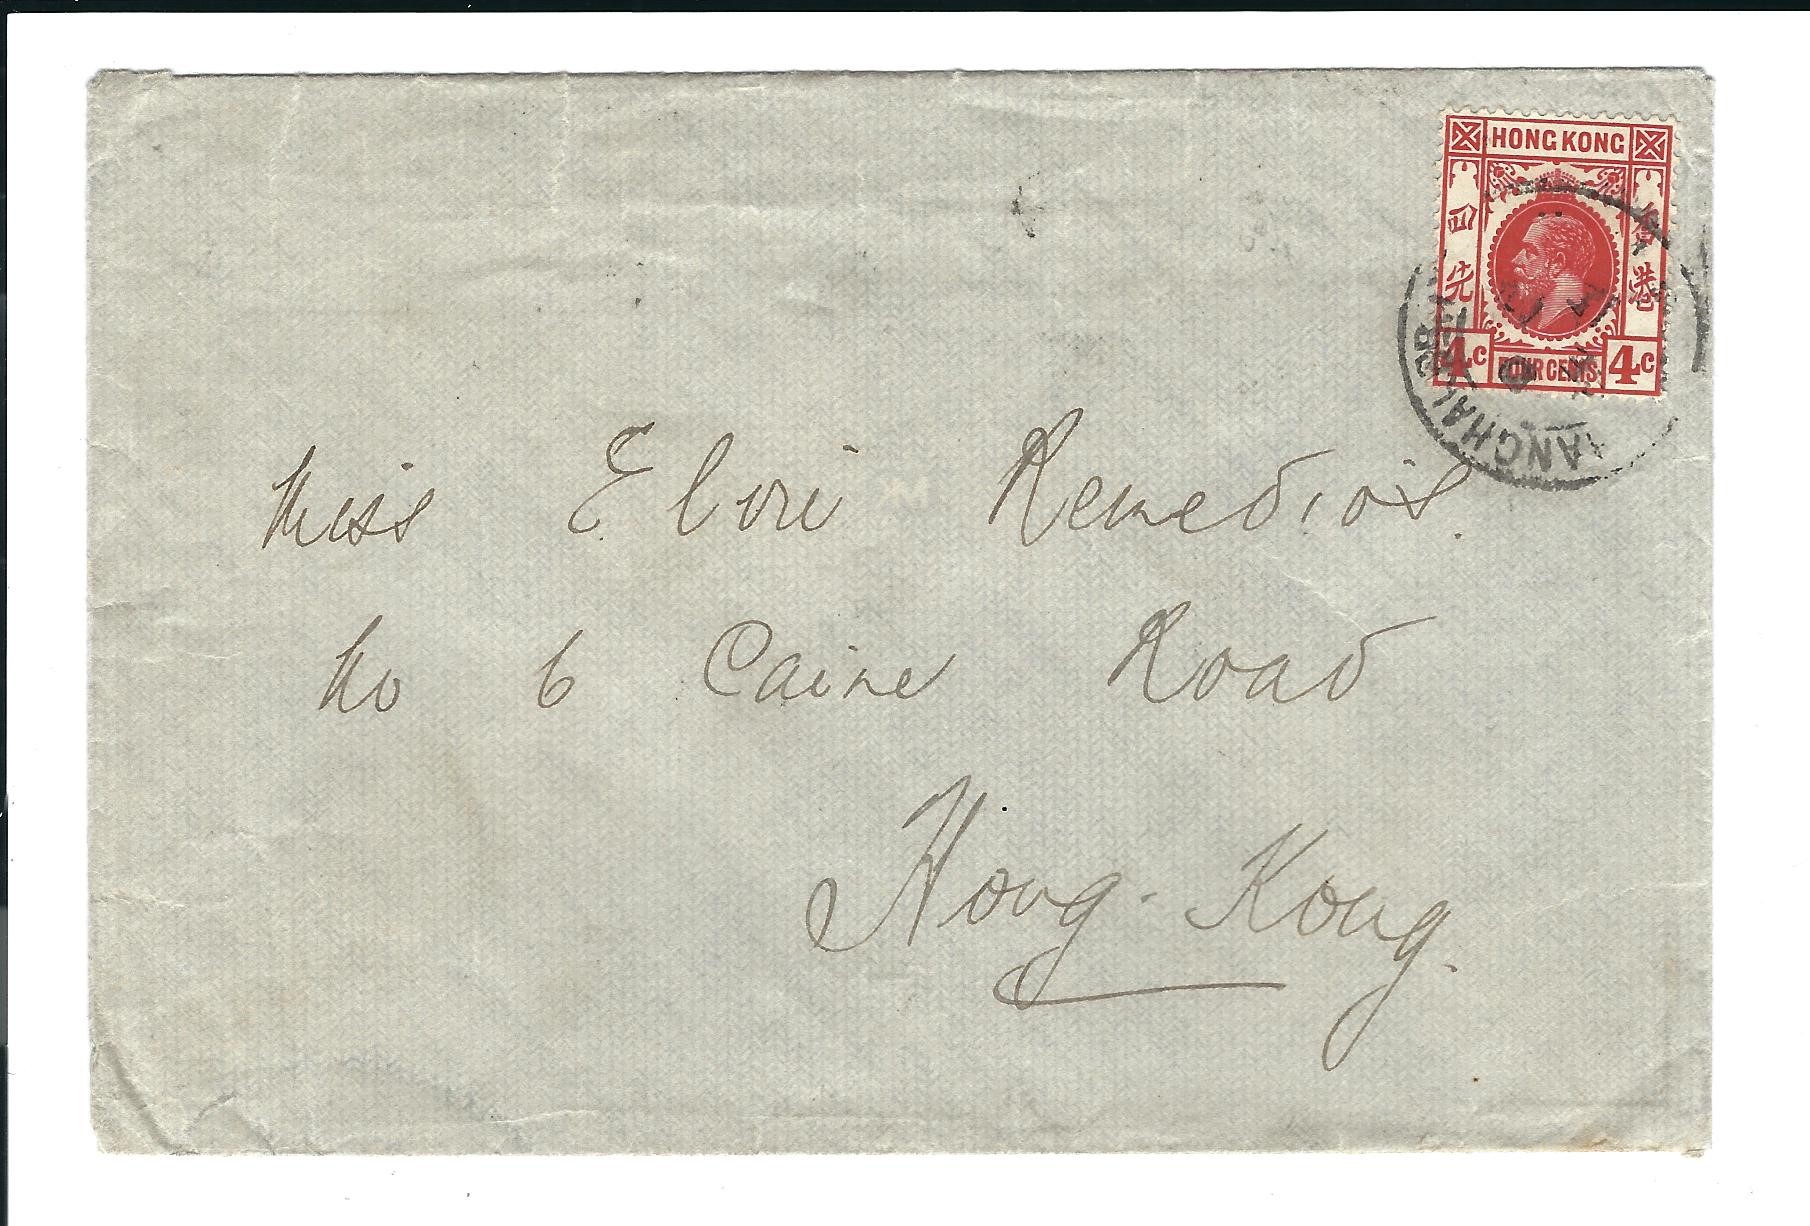 HONG KONG
四先
香港
4c
FOUR CENTS
4c
SHANGHAI
Miss Elvie Remedios.
No 6 Caine Road
Hong-Kong.